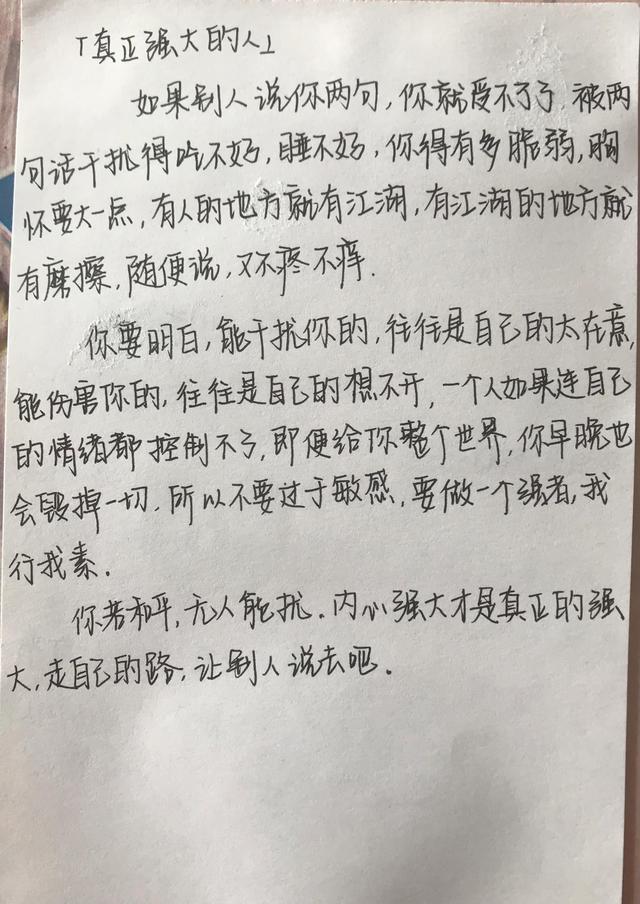 「真正强大的人」
如果别人说你两句,你就受不了了,被两
句话干扰得吃不好,睡不好,你得有多脆弱,胸
怀要大一点,有人的地方就有江湖,有江湖的地方就
有磨擦,随便说,又不疼不痒.
你要明白,能干扰你的,往往是自己的太在意,
能伤害你的,往往是自己的想不开,一个人如果连自己
的情绪都控制不了,即便给你整个世界,你早晚也
会毁掉一切.所以不要过于敏感,要做一个强者,我
行我素.
你若和平,无人能扰.内心强大才是真正的强
大,走自己的路,让别人说去吧.